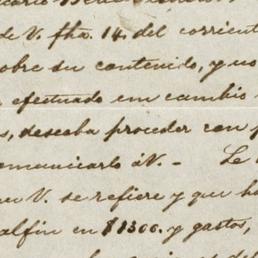 de V. fha. 14. del corrient
obre su contenido, y no
efectuado em cambio
s, deseaba proceder con
omunicarlo á V. – Le
V. se refiere y que ha
alfin en $1300. y gastos,